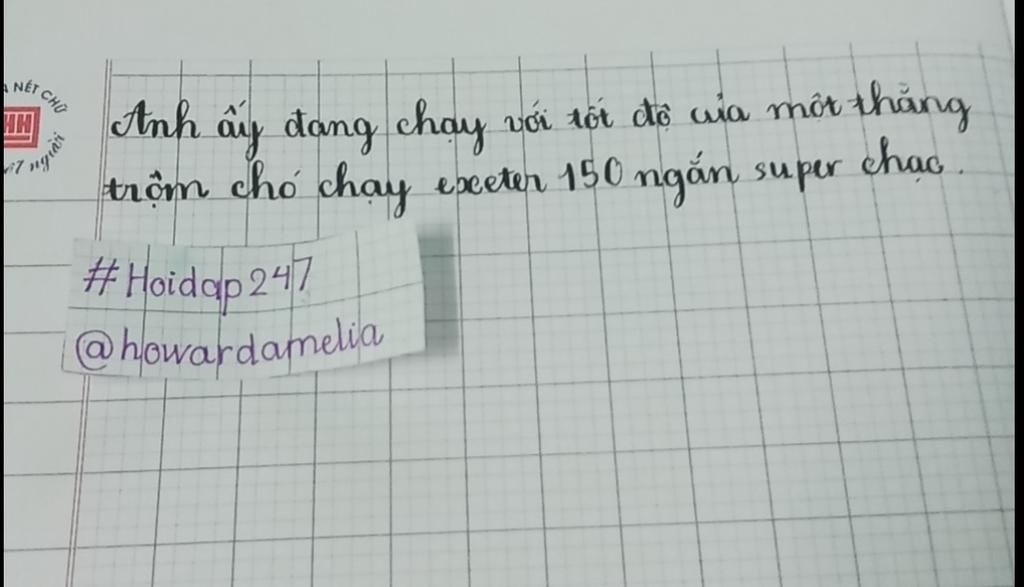 NÉT CHỮ
HH
người
Anh ấy đang chạy với tốt độ của một thằng
trộm chó chạy exceter 150 ngắn super chạc.
#Hoidap247
@howardamelia